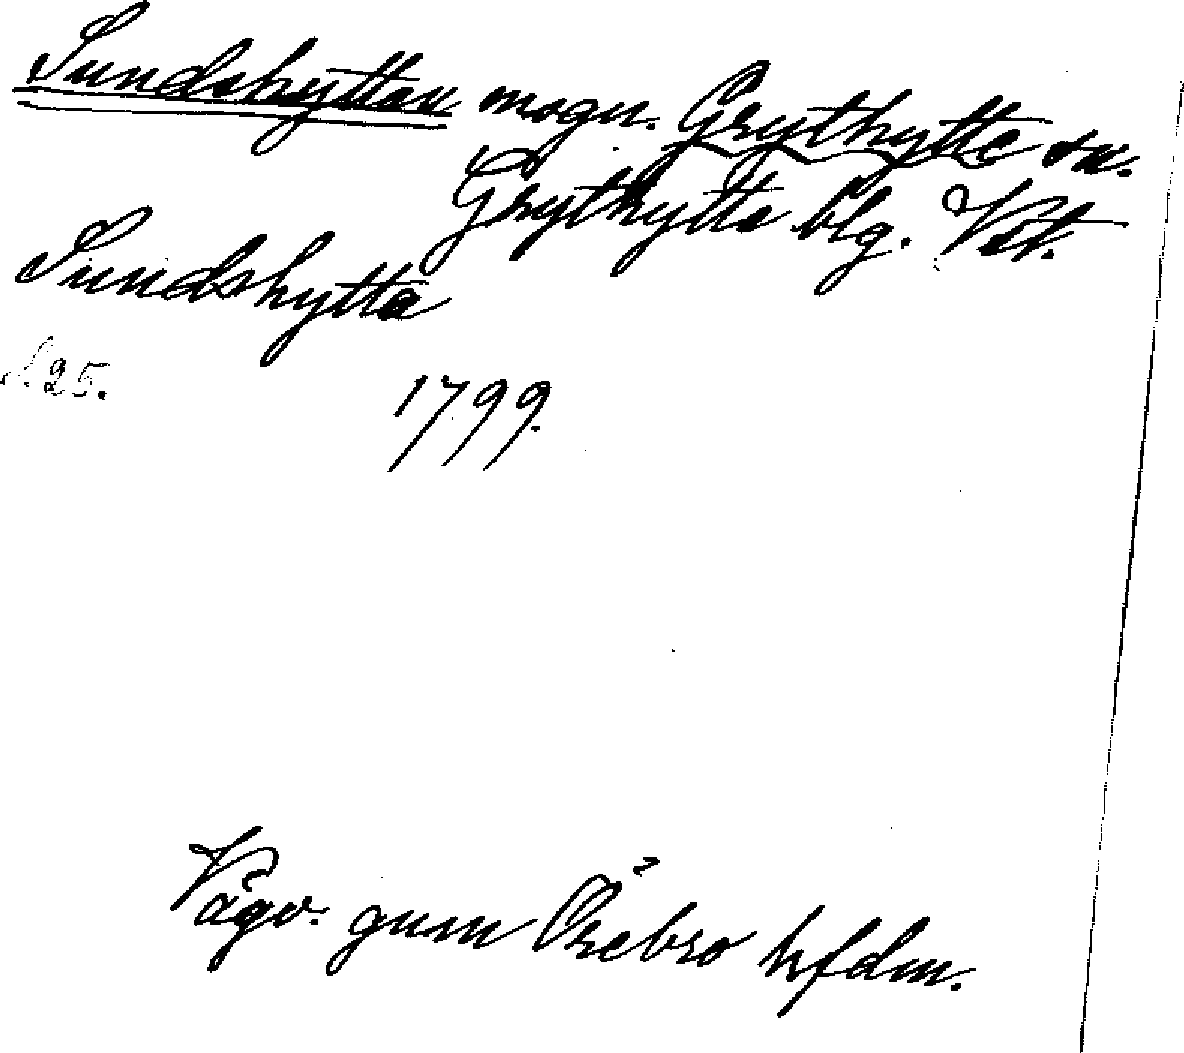 Sundshyttan magn. Grythytte sn.
Grythytte blg. Vstm.
Sundshytta
s. 25.
1799.
Vägv. gnm Örebro hfdm.